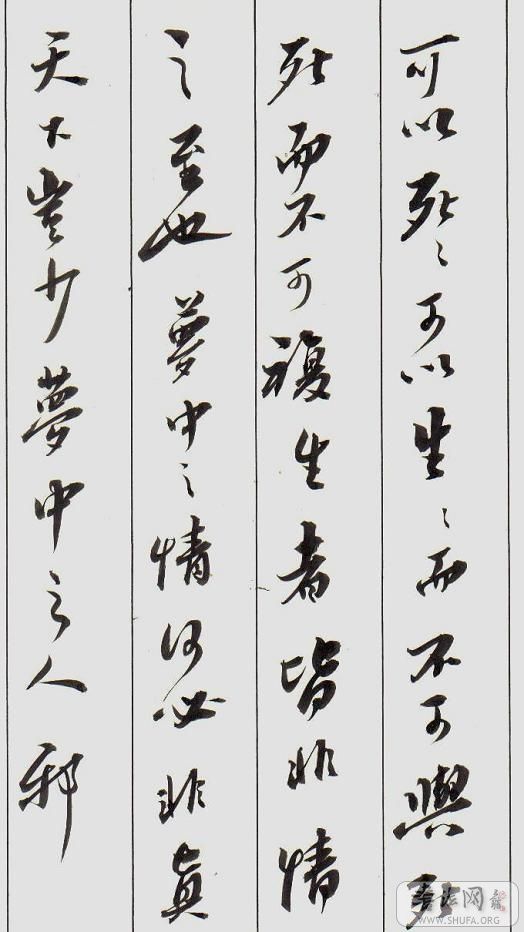 可以死〻可以生〻而不可與死
死而不可複生者皆非情
之至也夢中之情何必非真
天下豈少夢中之人邪
書法网
WWW.SHUFA.ORG